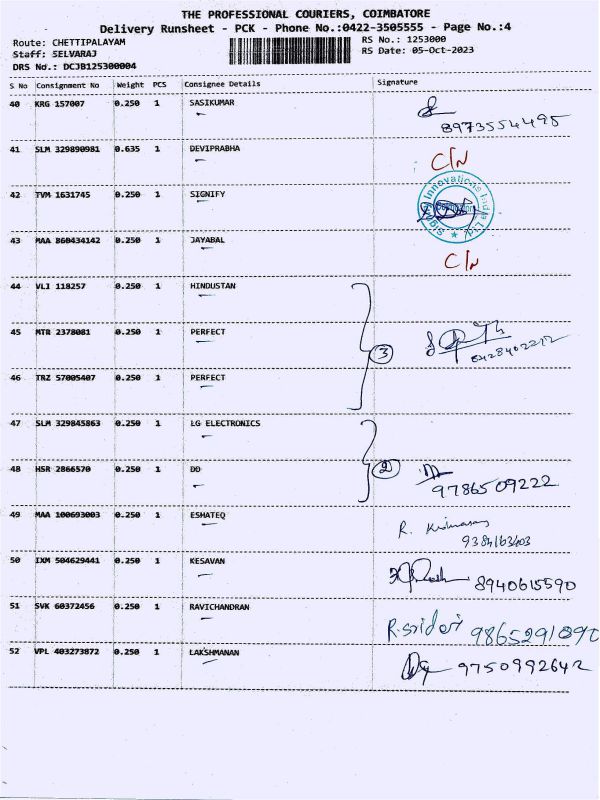 THE PROFESSIONAL COURIERS, COIMBATORE
Delivery Runsheet - PCK - Phone No.:0422-3505555 - Page No.:4
Route: CHETTIPALAYAM
RS No.: 1253000
Staff: SELVARAJ
RS Date: 05-Oct-2023
DRS No.: DCJB125300004
S No Consignment No Weight PCS Consignee Details Signature
40 KRG 157007 0.250 1 SASIKUMAR
8973554495
41 SLM 329890981 0.635 1 DEVIPRABHA C/N
42 TVM 1631745 0.250 1 SIGNIFY
Signify Innovations India Ltd.
43 MAA 860434142 0.250 1 JAYABAL C/N
44 VLI 118257 0.250 1 HINDUSTAN
45 MTR 2378081 0.250 1 PERFECT
3
8428402212
46 TRZ 57005407 0.250 1 PERFECT
47 SLM 329845863 0.250 1 LG ELECTRONICS
48 HSR 2866570 0.250 1 DO
2
9786509222
49 MAA 100693003 0.250 1 ESHATEQ
R.
9384163403
50 IXM 504629441 0.250 1 KESAVAN
8940615590
51 SVK 60372456 0.250 1 RAVICHANDRAN
R.sridori 9865291890
52 VPL 403273872 0.250 1 LAKSHMANAN
9750992642